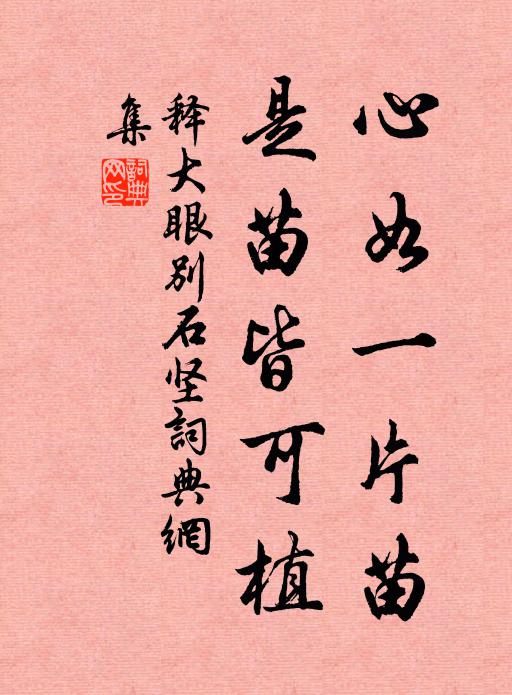 心如一片苗
是苗皆可植
释大眼别石坚詞典網
集
詞典网印